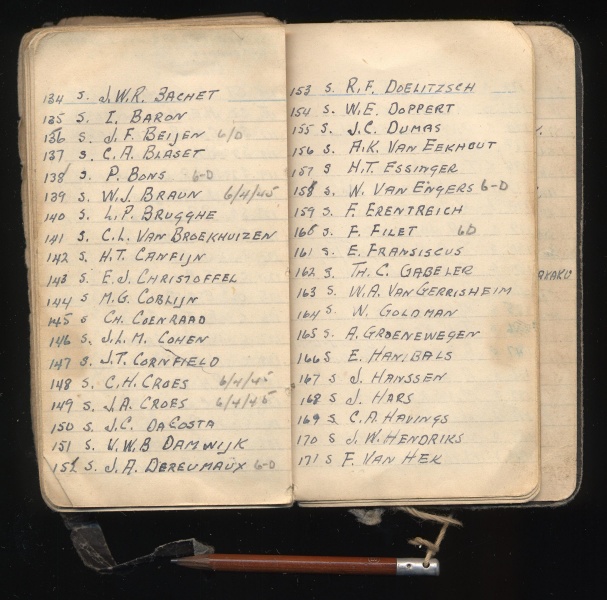 134 S. J.W.R. BACHET
135 S. I. BARON
136 S. J.F. BEIJEN 6/D
137 S. C.A. BLASET
138 S. P. BONS 6-D
139 S. W.J. BRAUN 6/4/45
140 S. L.P. BRUGGHE
141 S. C.L. VAN BROEKHUIZEN
142 S. H.T. CANFIJN
143 S E.J. CHRISTOFFEL
144 S M.G. COBLIJN
145 S CH. COENRAAD
146 S. J.L.M. COHEN
147 S. J.T. CORNFIELD
148 S. C.H. CROES 6/4/45
149 S. J.A. CROES 6/4/45
150 S. J.C. DACOSTA
151 S. V.W.B DAMWIJK
152 S. J.A. DEREUMAUX 6-D
153 S. R.F. DOELITZSCH
154 S. W.E. DOPPERT
155 S. J.C. DUMAS
156 S. A.K. VAN EEKHOUT
157 S H.T. ESSINGER
158 S. W. VAN EŸNGERS 6-D
159 S. F. ERENTREICH
160 S. F. FILET 6D
161 S. E. FRANSISCUS
162 S. TH. C. GABELER
163 S. W.A. VAN GERRISHEIM
164 S. W. GOLDMAN
165 S. A. GROENEWEGEN
166 S E. HAN.BALS
167 S J. HANSSEN
168 S J. HARS
169 S. C.A. HAVINGS
170 S J.W. HENDRIKS
171 S F. VAN HEK